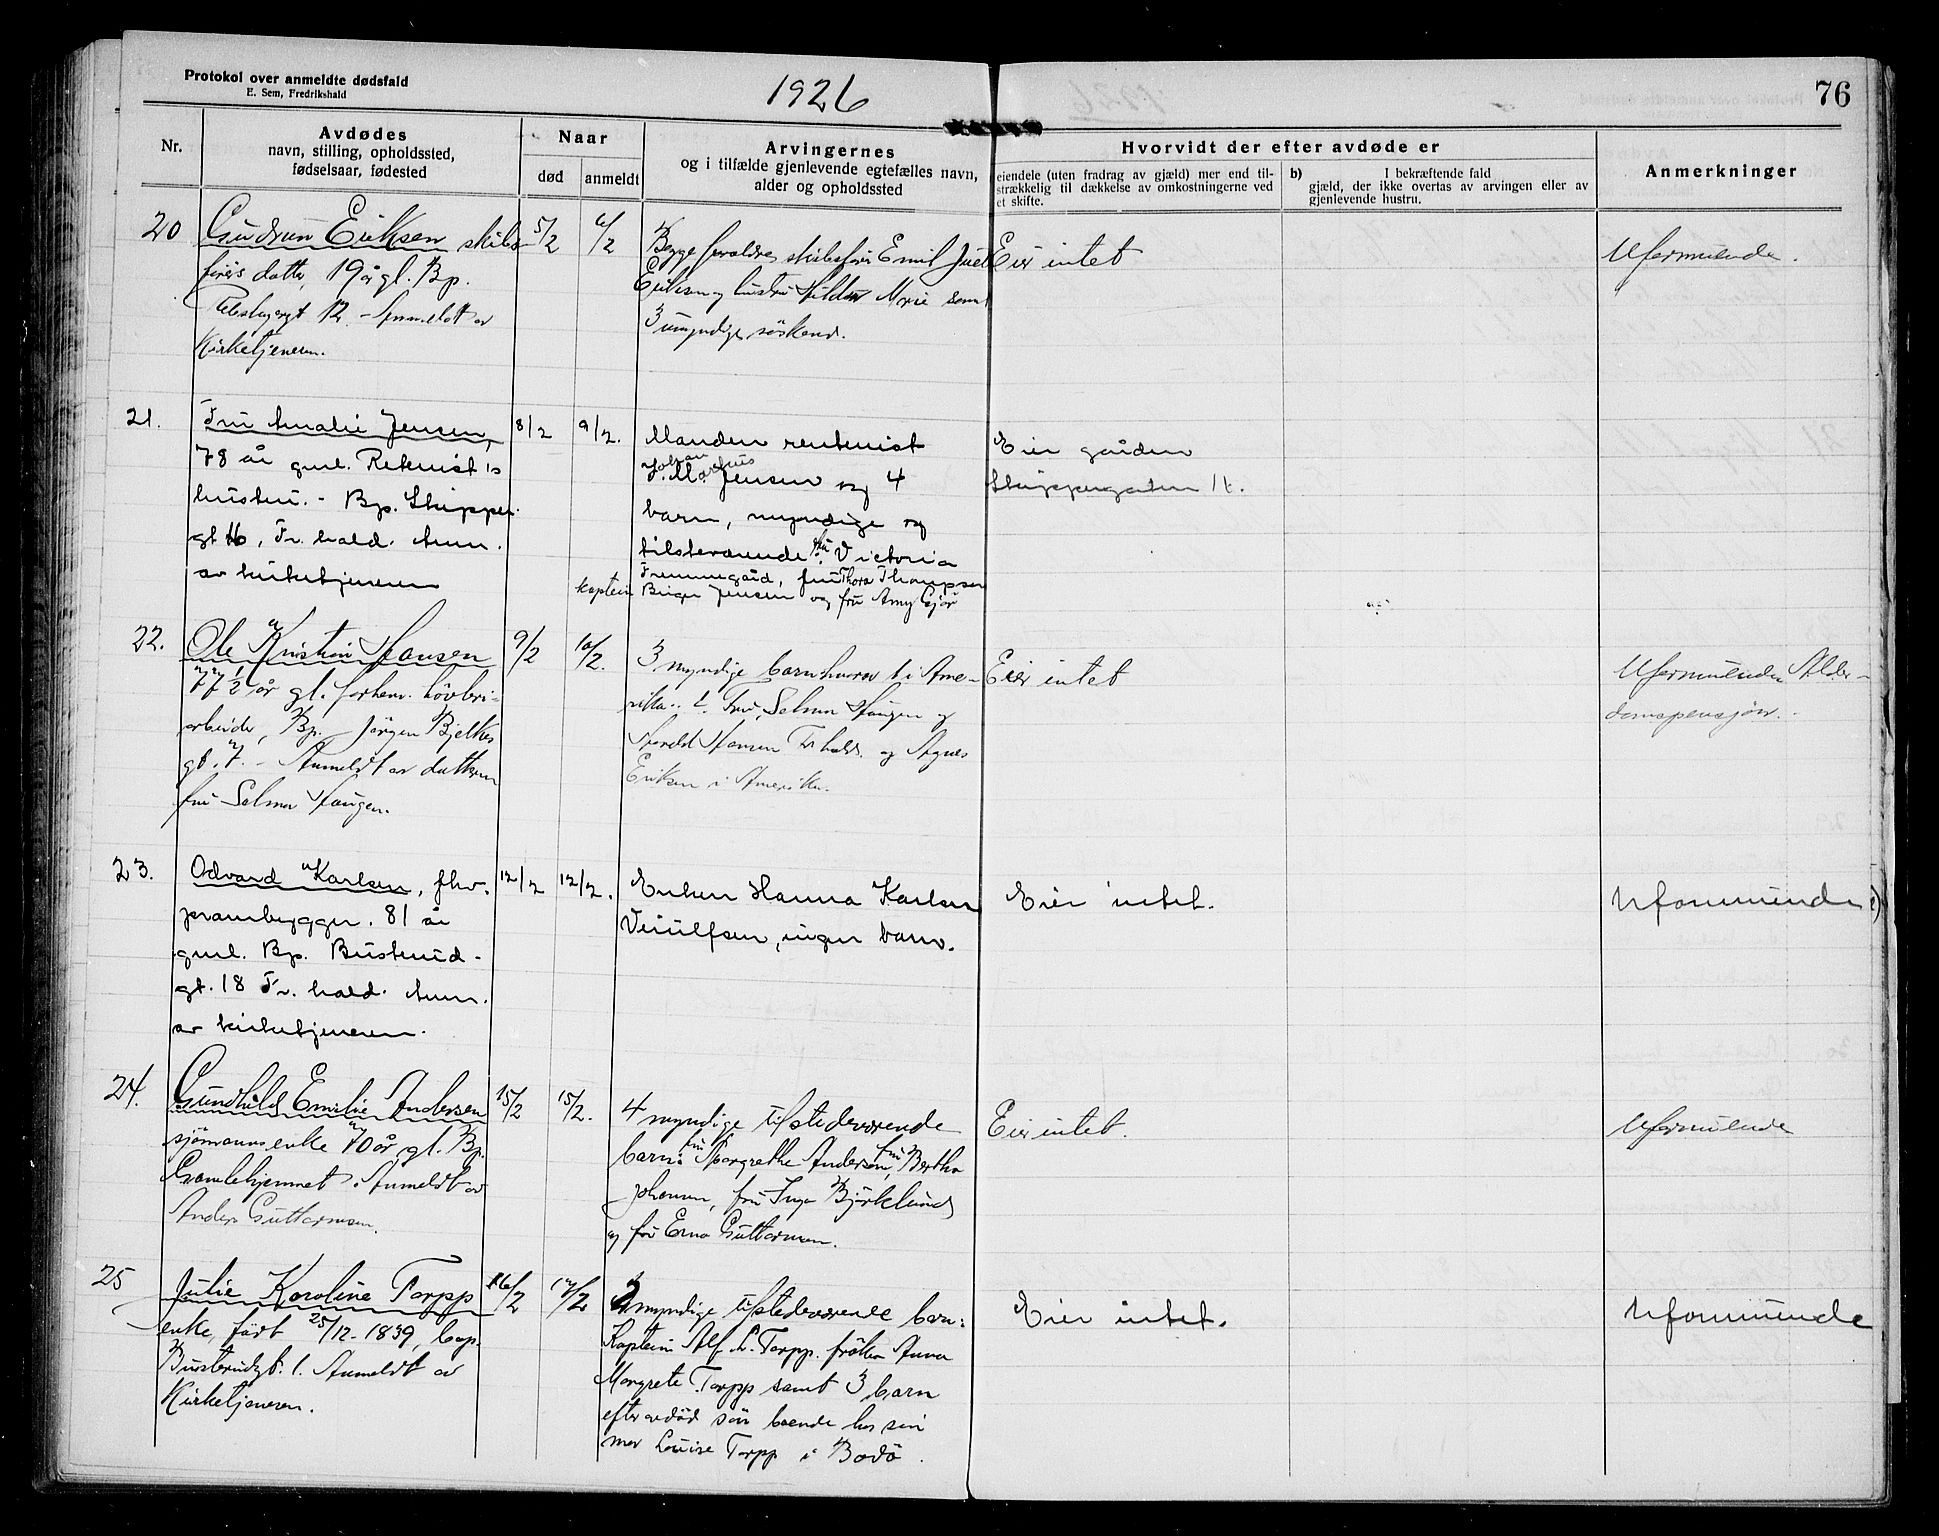 Protokol over anmeldte dødsfald
E. Sem, Fredrikshald
1926
76
Nr.
Avdødes
navn, stilling, opholdssted,
fødselsaar, fødested
Naar
død
anmeldt
Arvingernes
og i tilfælde gjenlevende egtefælles navn,
alder og opholdssted
Hvorvidt der efter avdøde er
eiendele (uten fradrag av gjæld) mer end til-
strækkelig til dækkelse av omkostningerne ved
et skifte.
b) I bekræftende fald
gjæld, der ikke overtas av arvingen eller av
gjenlevende hustru.
Anmerkninger
20
Gudrun Eriksen skibs-
førers datter, 19 år gl. Bp.
12. Anmeldt av
Kirketjeneren.
5/2
6/2
Begge foraldre, skibsfører Emil Juel
Eriksen og hustru Hilda Marie samt
3 umyndige søskend.
Eier intet
Uformuende.
21.
Fru Amalie Jensen,
78 år gml. Retenist's
hustru. - Bp. Skipper-
gt 16, Fr. hald. Anm.
av kirketjeneren
8/2
9/2.
Manden rentenist
Johan Marius
J. M. Jensen og 4
barn, myndige og
tilsteværende: fru Victoria
Fremmegård, fru Thora Thompsen
kaptein Birger Jensen og fru Amy Gjør
Eier gården
Skippergaten 16.
22.
Ole Kristian Hansen
77 1/2 år gl. forhenv. høvleri-
arbeider, Bp. Jørgen Bjelkes
gt. 7. - Anmeldt av datteren
fru Selma Haugen.
9/2
10/2.
3 myndige barn hvorav 1 i Ame-
rika: Fru Selma Haugen og
Harald Hansen Fr.hald. og Agnes
Eriksen i Amerika.
Eier intet
Uformuende. Alder-
domspensjon.
23.
Odvard Karlsen, fhv.
prambygger. 81 år
gml. Bp. Busterud-
gt. 18 Fr. hald. Anm.
av kirketjeneren.
12/2
12/2.
Enken Hanna Karlsen
Veiulfsen, ingen barn.
Eier intet.
Uformuende
24.
Gundhild Emilie Andersen
sjømanns enke 70 år gl. Bp.
Gamlehjemmet. Anmeldt av
Anders Guttormsen.
15/2
15/2.
4 myndige tilstedeværende
barn: fru Margrethe Andersen, fru Bertha
Johansen, fru Inga Bjørklund
og fru Erna Guttormsen.
Eier intet.
Uformuende
25
Julie Karoline Torpp
enke, født 25/12-1839, bop.
Busterudgt. 1. Anmeldt av
Kirketjeneren.
16/2
17/2
2 myndige tilstedeværende barn:
Kaptein Alf L. Torpp, frøken Anna
Margrete Torpp samt 3 barn
efter avdød søn boende hos sin
mor Louise Torpp i Bodø.
Eier intet.
Uformuende